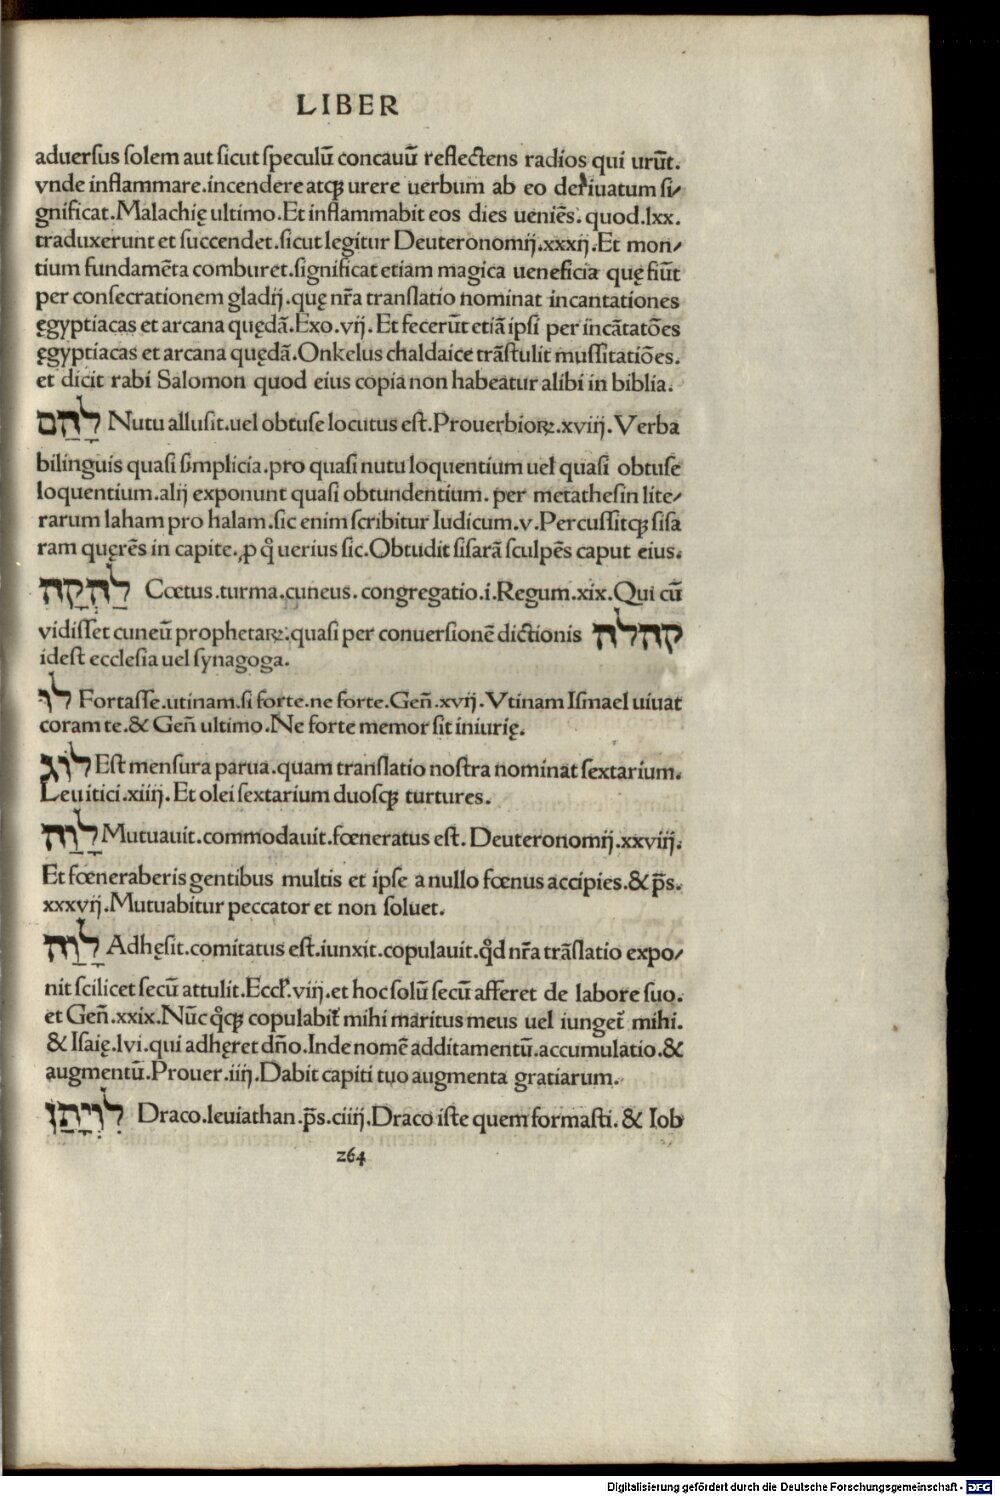 LIBER
aduersus solem aut sicut speculū concauū reflectens radios qui urūt.
vnde inflammare.incendere atqꝫ urere uerbum ab eo deriuatum si/
gnificat.Malachię ultimo.Et inflammabit eos dies ueniēs.quod.lxx.
traduxerunt et succendet.sicut legitur Deuteronomij.xxxij.Et mon/
tium fundamēta comburet.significat etiam magica ueneficia quę fiūt
per consecrationem gladij.quę nr̄a translatio nominat incantationes
ęgyptiacas et arcana quędā.Exo.vij.Et fecerūt etiā ipsi per incātatōes
ęgyptiacas et arcana quędā.Onkelus chaldaice trāstulit mussitatiōes.
et dicit rabi Salomon quod eius copia non habeatur alibi in biblia.
לָהַם Nutu allusit.uel obtuse locutus est.Prouerbioꝝ.xviij.Verba
bilinguis quasi simplicia.pro quasi nutu loquentium uel quasi obtuse
loquentium.alij exponunt quasi obtundentium.per metathesin lite/
rarum laham pro halam.sic enim scribitur Iudicum.v.Percussitqꝫ sisa
ram quęrēs in capite.ꝓ qͦ uerius sic.Obtudit sisarā sculpēs caput eius.
לַהְקָה Cœtus.turma.cuneus.congregatio.i.Regum.xix.Qui cū
vidisset cuneū prophetaꝝ.quasi per conuersionē dictionis קהלה
idest ecclesia uel synagoga.
לוּ Fortasse.utinam.si forte.ne forte.Geñ.xvij.Vtinam Ismael uiuat
coram te.& Geñ ultimo.Ne forte memor sit iniurię.
לוֹג Est mensura parua.quam translatio nostra nominat sextarium.
Leuitici.xiiij.Et olei sextarium duosqꝫ turtures.
לָוַה Mutuauit.commodauit.fœneratus est.Deuteronomij.xxviij.
Et fœneraberis gentibus multis et ipse a nullo fœnus accipies.& p̄s.
xxxvij.Mutuabitur peccator et non soluet.
לָוַה Adhęsit.comitatus est.iunxit.copulauit.qd̄ nr̄a trāslatio expo/
nit scilicet secū attulit.Eccl̓.viij.et hoc solū secū afferet de labore suo.
et Geñ.xxix.Nūc qͦqꝫ copulabit̓ mihi maritus meus uel iunget̓ mihi.
& Isaię.lvi.qui adhęret dn̄o.Inde nomē additamentū.accumulatio.&
augmentū.Prouer.iiij.Dabit capiti tuo augmenta gratiarum.
לִוְיָתַן Draco.leuiathan.p̄s.ciiij.Draco iste quem formasti.& Iob
264
Digitalisierung gefördert durch die Deutsche Forschungsgemeinschaft - DFG